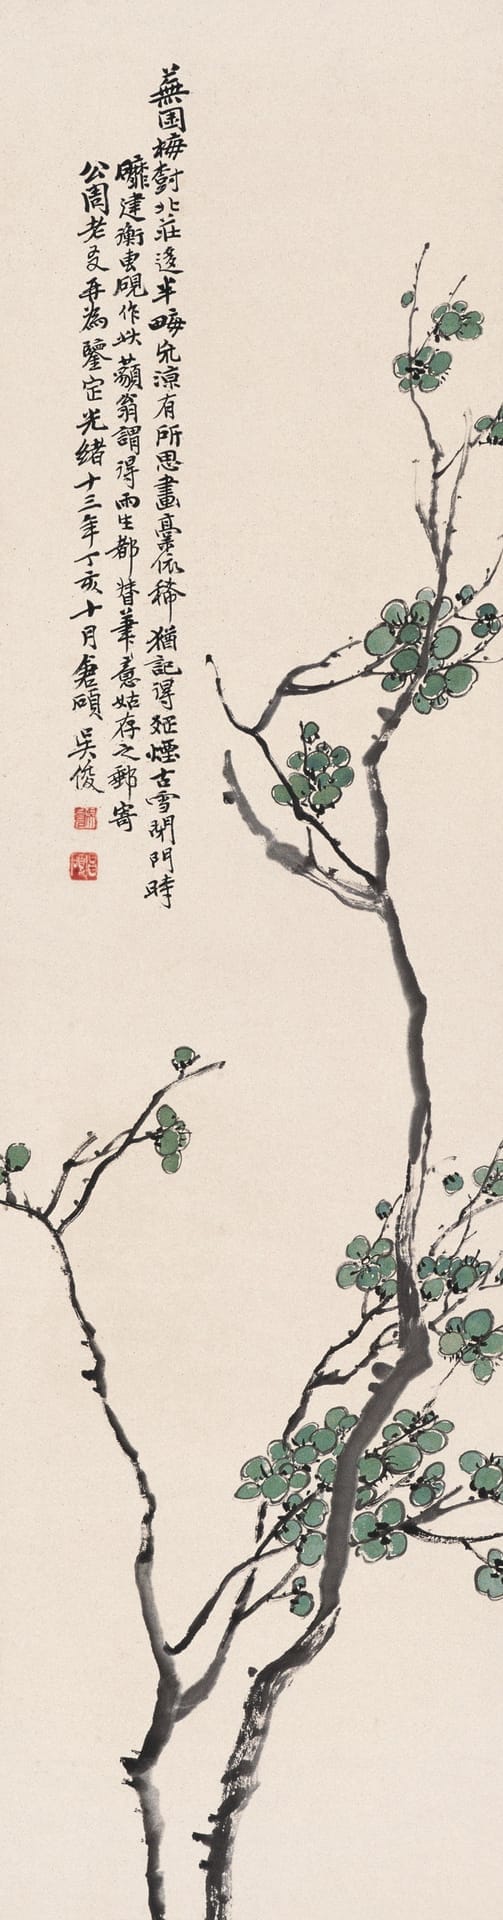 蕪園梅樹北莊遙半畮荒涼有所思畫稾依稀猶記得炊煙古雪閉門時
建衡
研作此蘋翁謂得雨生都督筆意姑存之郵寄
公周老友再為鑒定光緒十三年丁亥十月倉碩吳俊